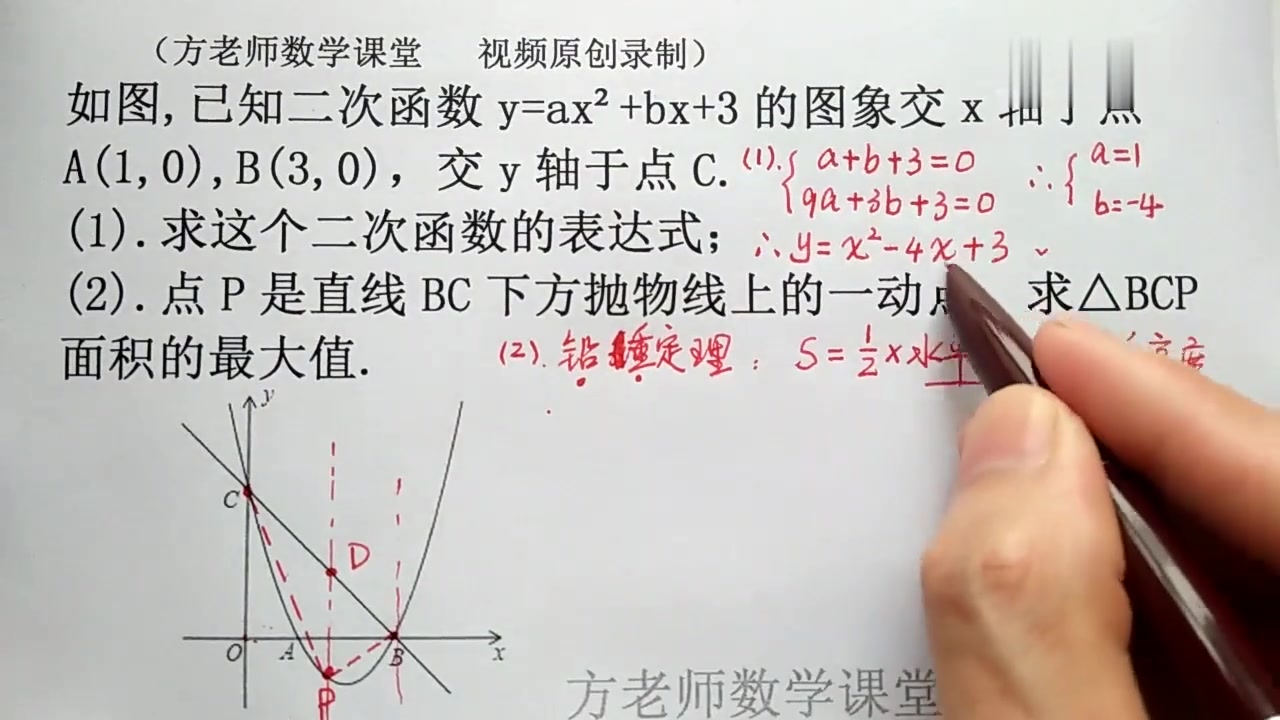 （方老师数学课堂 视频原创录制）
如图,已知二次函数 y=ax²+bx+3 的图象交 x 轴于点
A(1,0),B(3,0)，交 y 轴于点 C.
(1). { a+b+3=0
9a+3b+3=0
∴ { a=1
b=-4
(1).求这个二次函数的表达式；
∴ y=x²-4x+3
(2).点 P 是直线 BC 下方抛物线上的一动 求△BCP
面积的最大值.
(2). 铅锤定理： S=½×水平
y
C
D
O A B x
P
方老师数学课堂